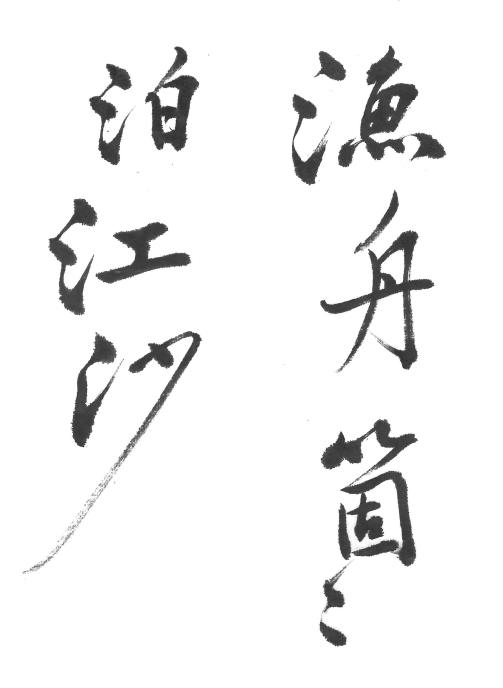 漁舟箇々
泊江沙